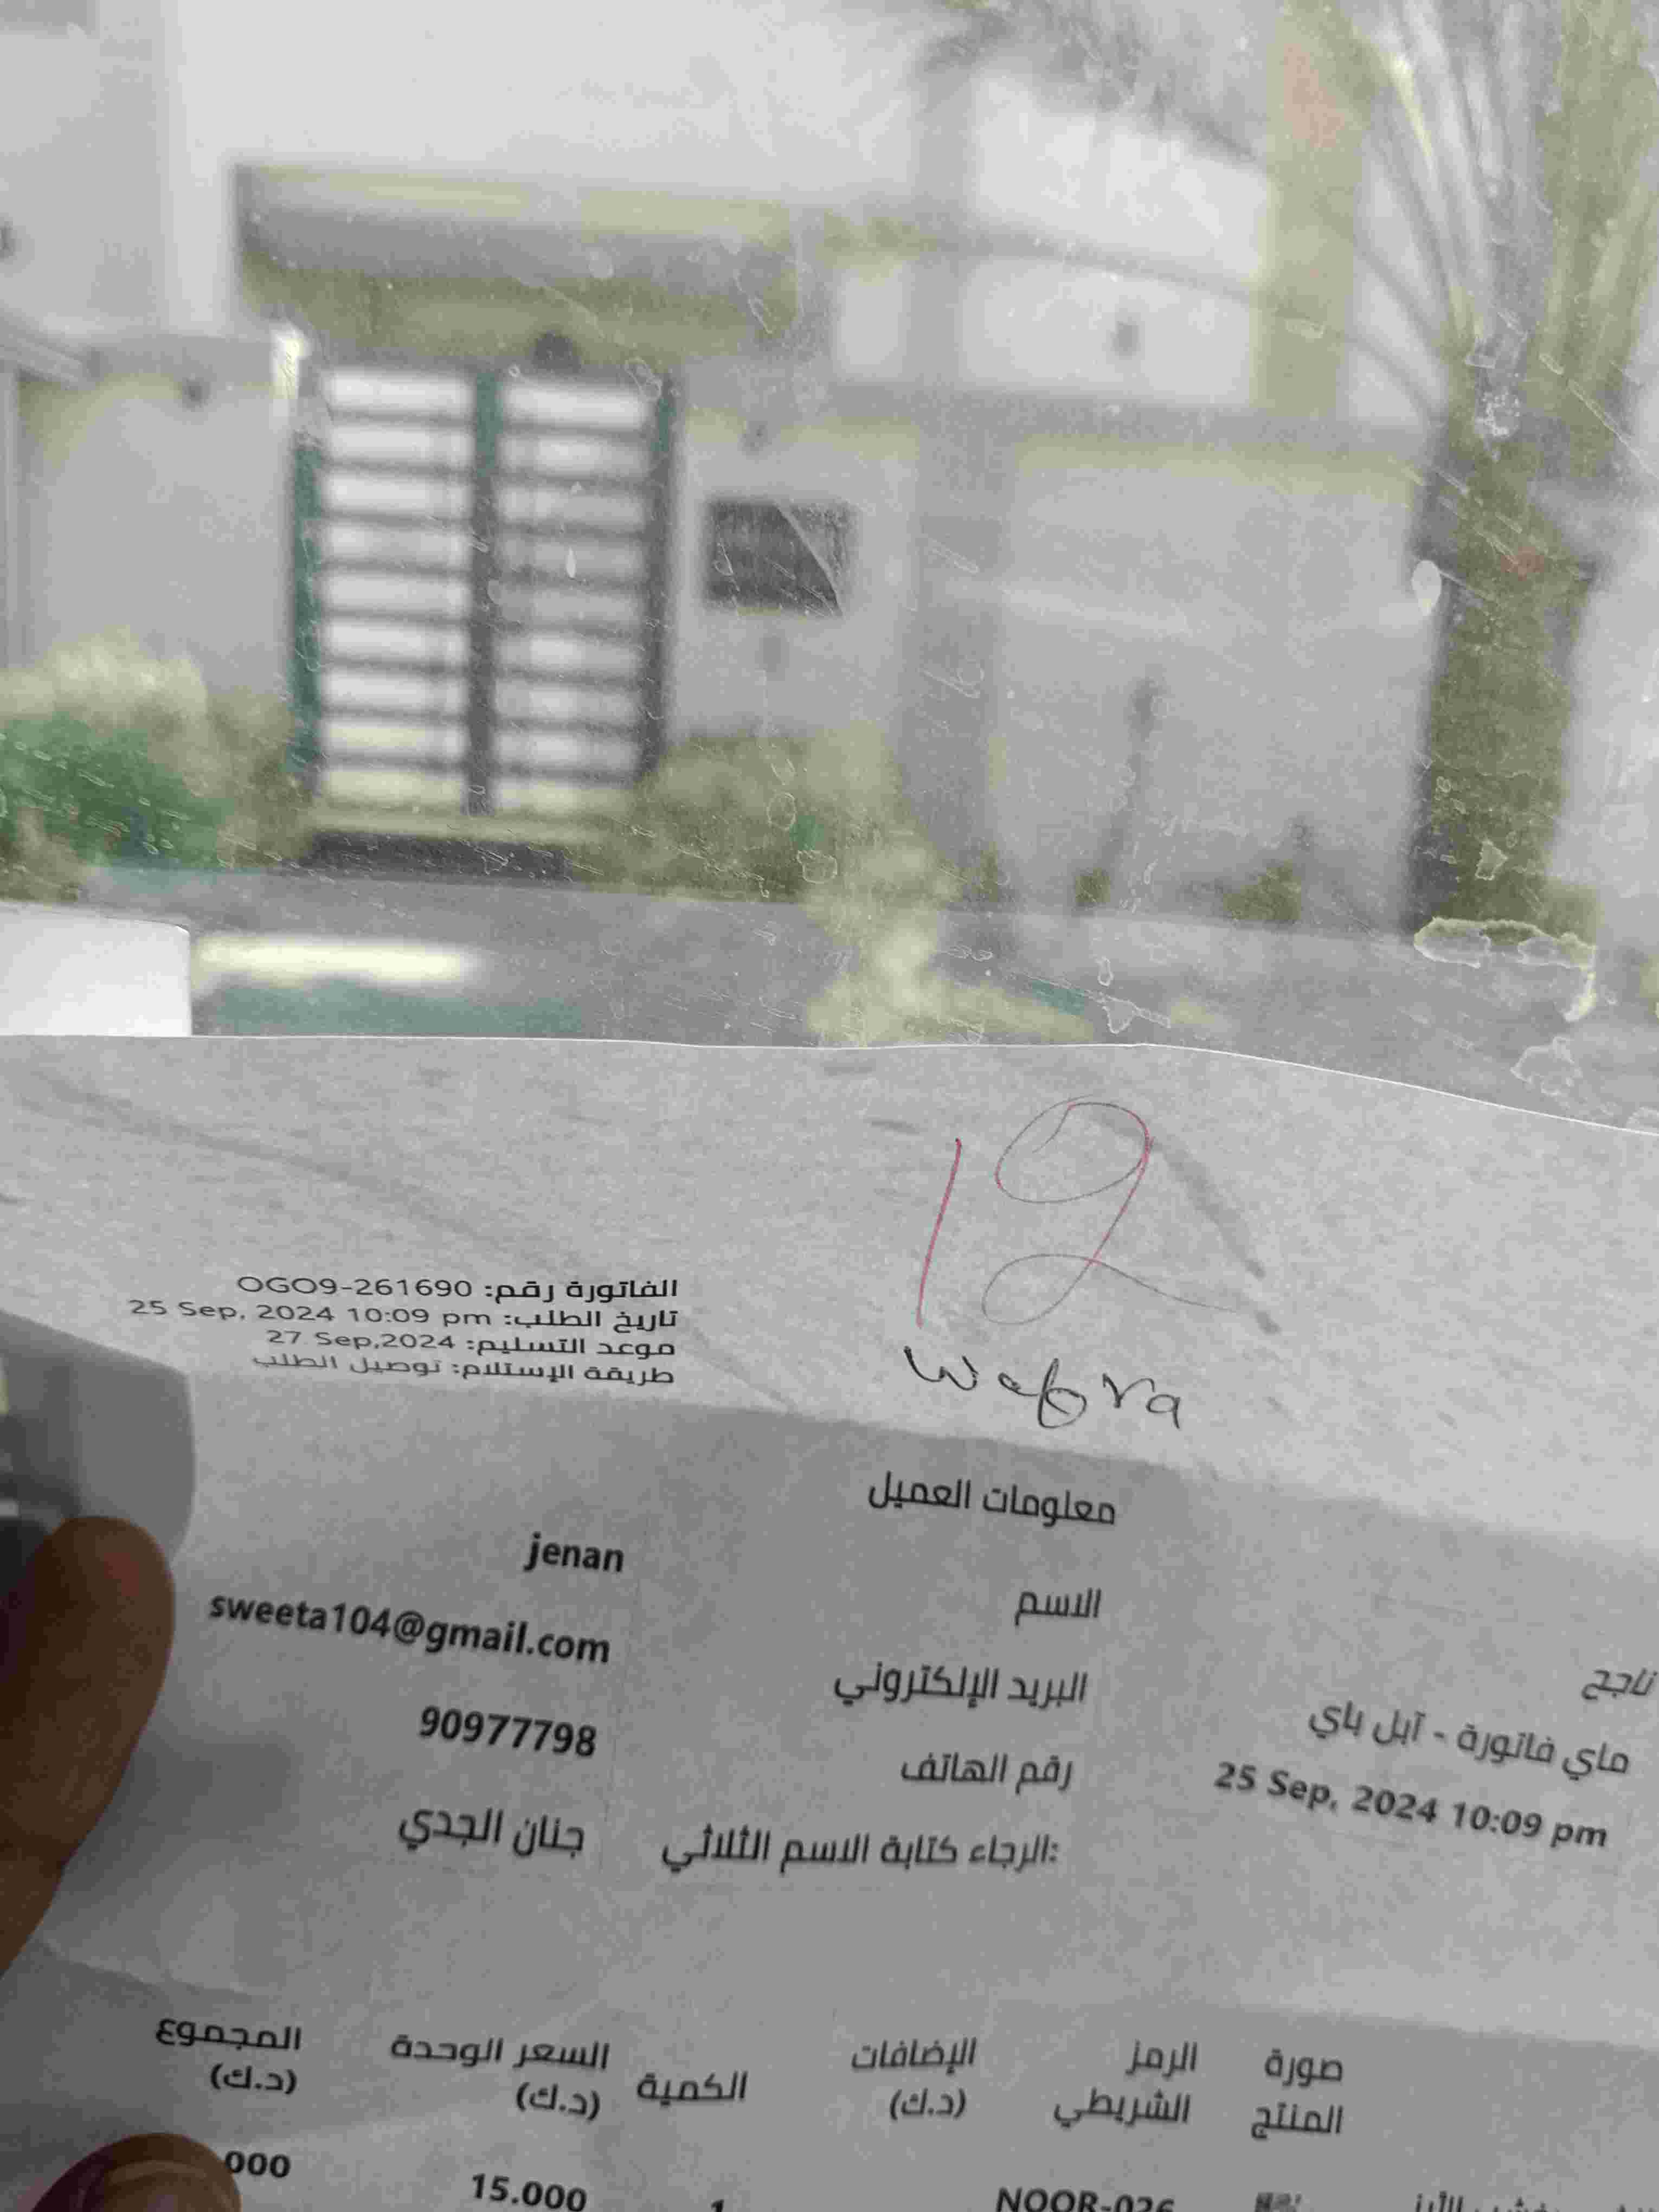 12
wafra
الفاتورة رقم: OGO9-261690
تاريخ الطلب: 25 Sep, 2024 10:09 pm
موعد التسليم: 27 Sep,2024
طريقة الإستلام: توصيل الطلب
معلومات العميل
الاسم jenan
البريد الإلكتروني sweeta104@gmail.com
رقم الهاتف 90977798
الرجاء كتابة الاسم الثلاثي: جنان الجدي
ناجح
ماي فاتورة - آبل باي
25 Sep, 2024 10:09 pm
صورة المنتج
الرمز الشريطي
الإضافات (د.ك)
الكمية
السعر الوحدة (د.ك)
المجموع (د.ك)
NOOR-026 1 15.000 000